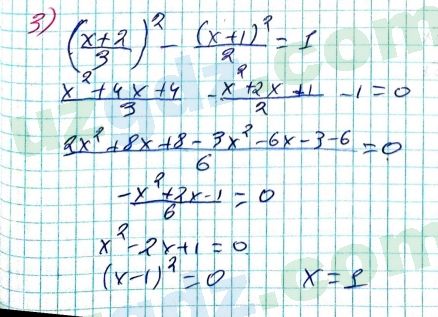 3) ((x+2)/3)² - (x+1)²/2 = 1
(x²+4x+4)/3 - (x²+2x+1)/2 - 1 = 0
(2x²+8x+8-3x²-6x-3-6)/6 = 0
(-x²+2x-1)/6 = 0
x²-2x+1=0
(x-1)²=0 x=1